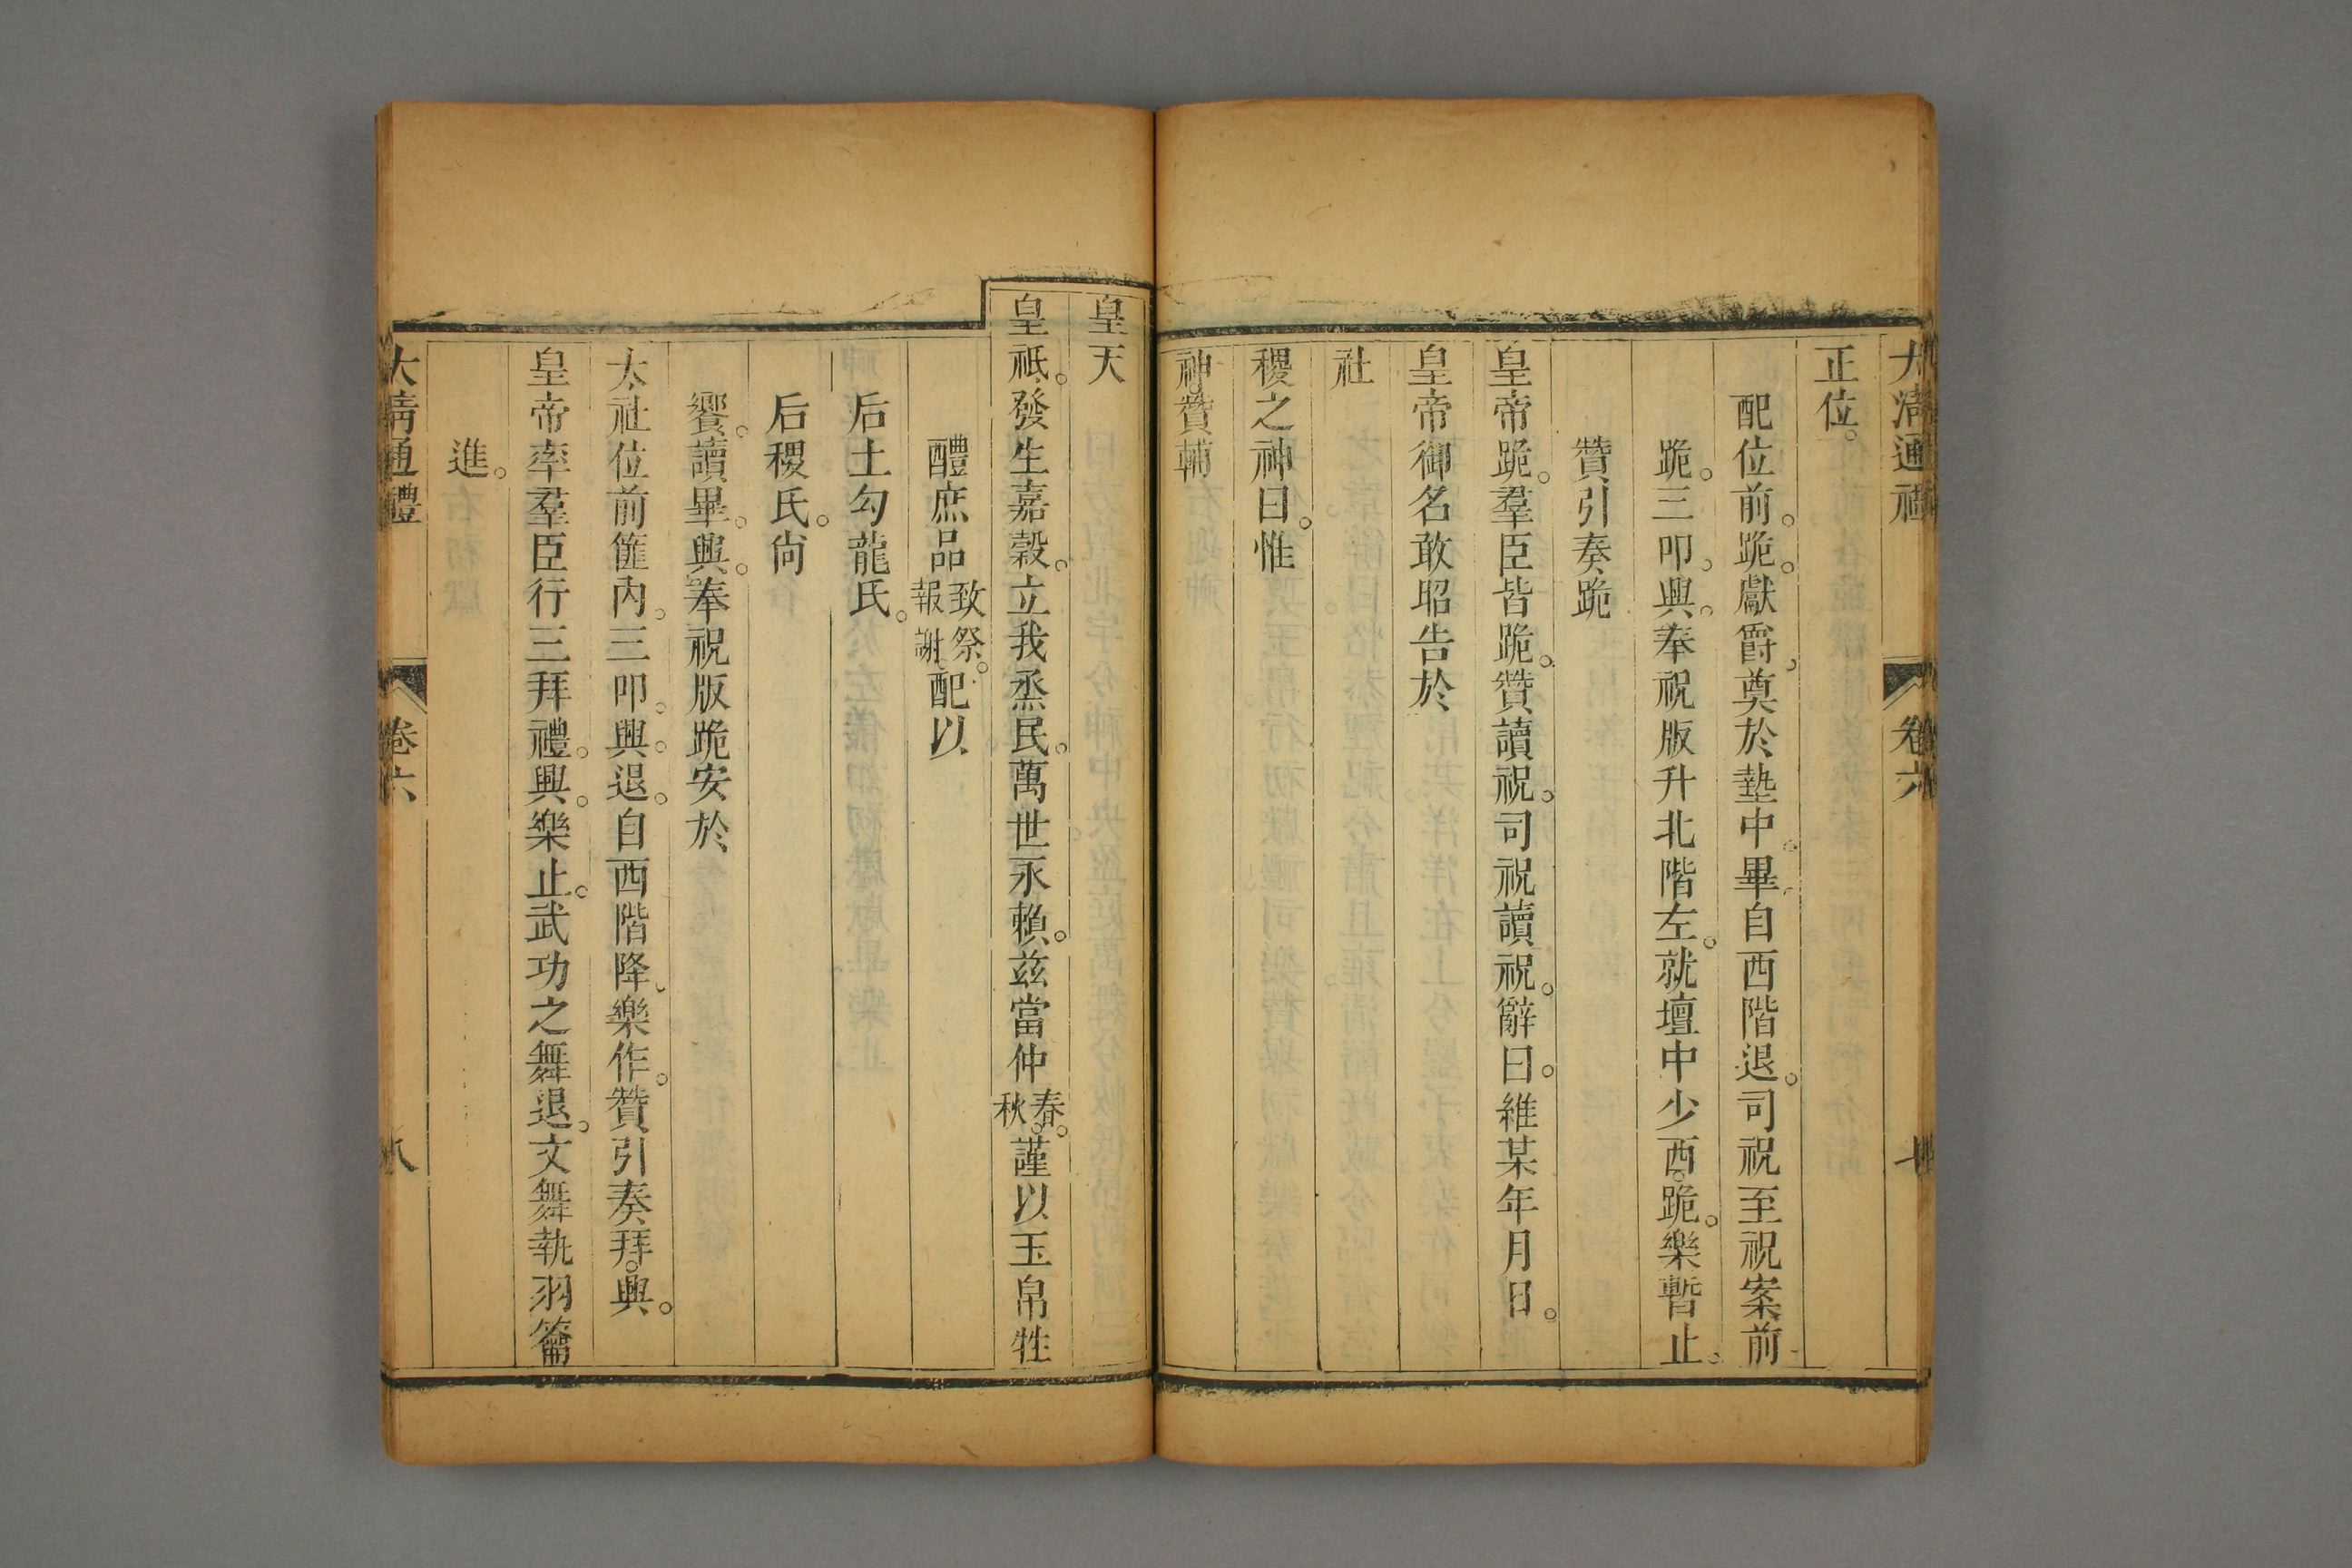 大清通禮 卷六 七
正位。
配位前。跪。獻爵。奠於墊中。畢。自西階退。司祝至祝案前
跪。三叩。興。奉祝版升北階左。就壇中少西。跪。樂暫止。
贊引奏跪
皇帝跪。羣臣皆跪。贊讀祝。司祝讀祝。辭曰。維某年月日。
皇帝御名敢昭告於
社
稷之神曰。惟
神。贊輔
皇天
皇祇。發生嘉穀。立我烝民。萬世永賴。茲當仲春。秋。謹以玉帛牲
醴庶品致祭。報謝配以
后土勾龍氏。
后稷氏。尚
饗。讀畢。興。奉祝版跪安於
太社位前篚內。三叩。興。退。自西階降。樂作。贊引奏拜。興。
皇帝率羣臣行三拜禮。興。樂止。武功之舞退。文舞執羽籥
進。
大清通禮 卷六 八